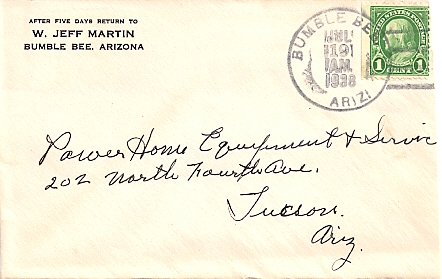 AFTER FIVE DAYS RETURN TO
W. JEFF MARTIN
BUMBLE BEE, ARIZONA
BUMBLE BE
19
AM
1936
ARIZ
UNITED STATES POSTAGE
1 CENT 1
Power Home Equipment & Servic
202 North Fourth Ave.
Tucson.
Ariz.